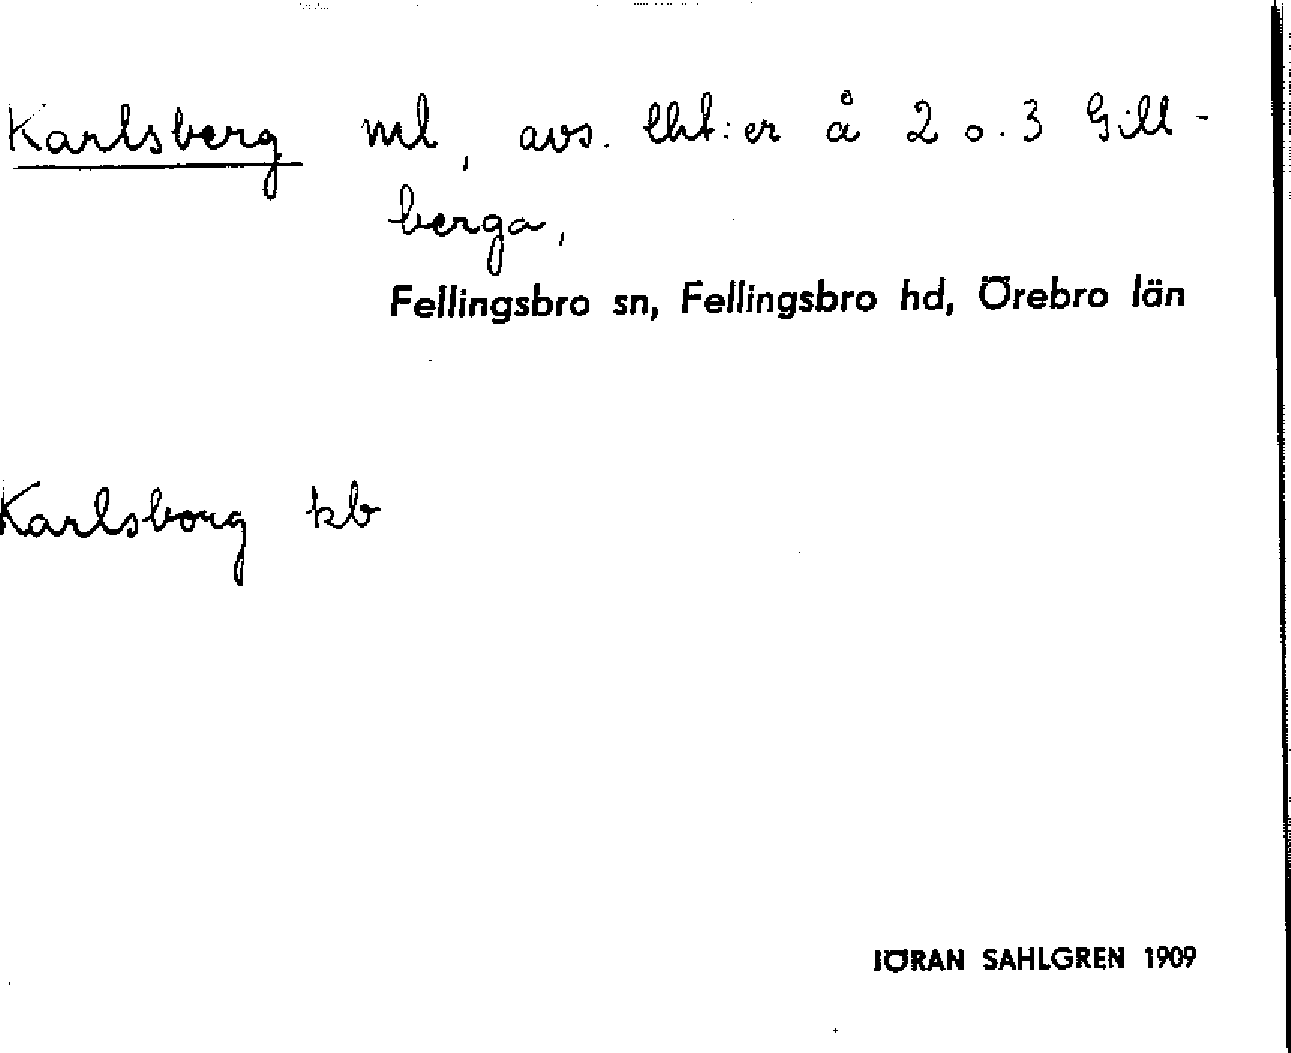 Karlsberg ml, avs. lht:er å 2 o. 3 Gill-
berga,
Fellingsbro sn, Fellingsbro hd, Örebro län
Karlsborg kb
JÖRAN SAHLGREN 1909